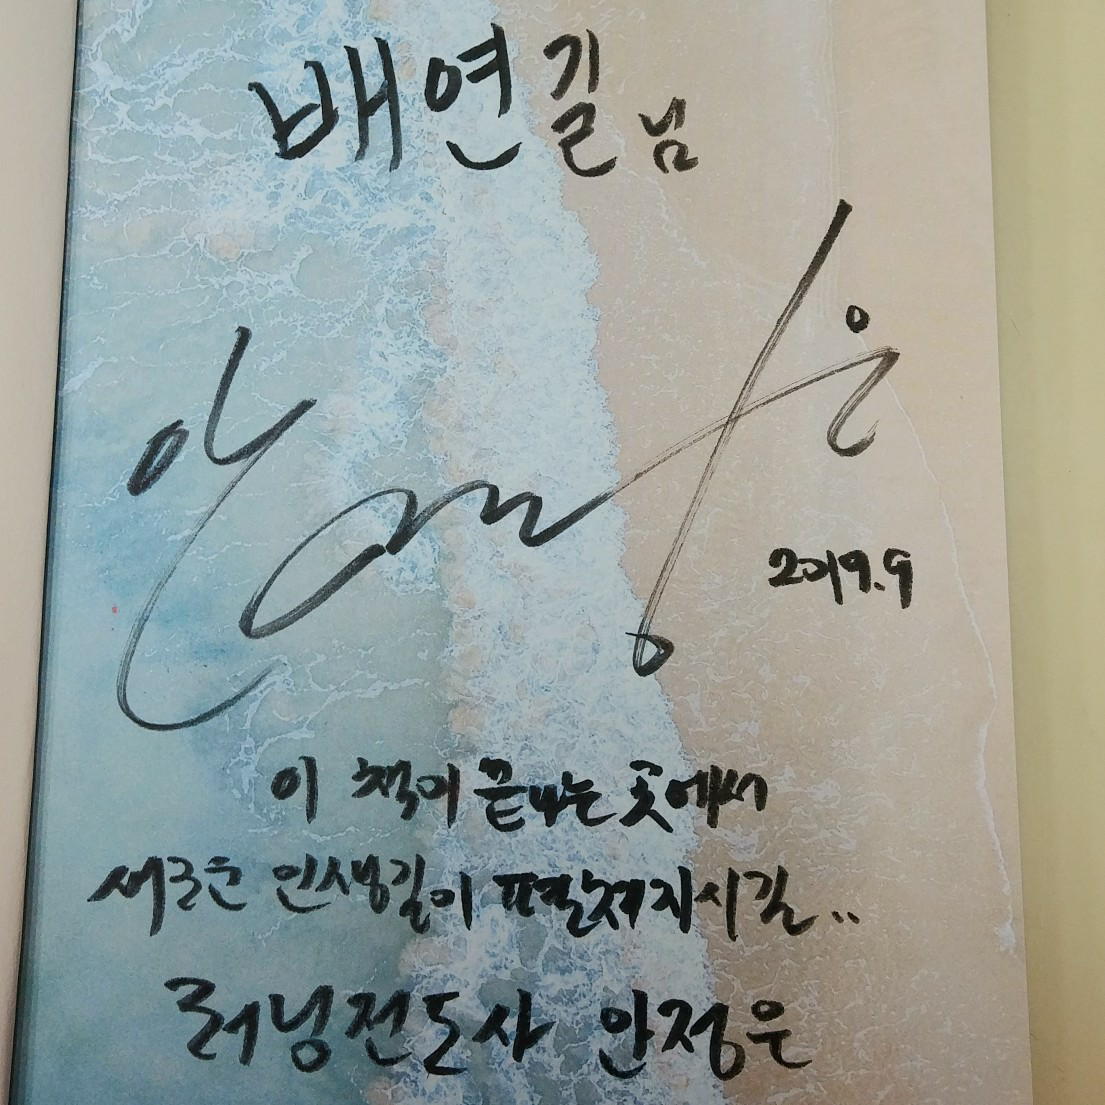 배연길 님
안정은
2019.9
이 책이 끝나는 곳에서
새로운 인생길이 펼쳐지시길..
러닝전도사 안정은